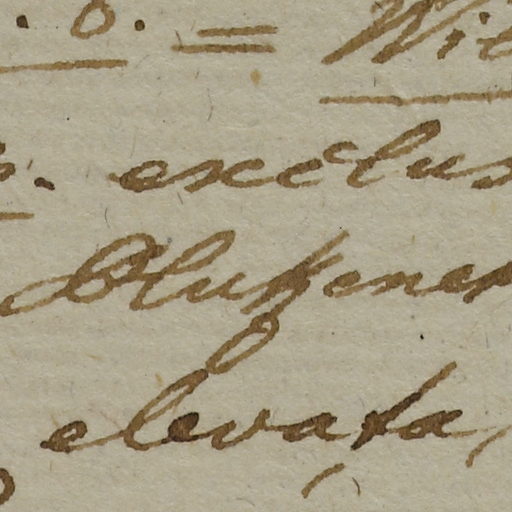 . 8. = Wil
. exclus
Blutzener
elevata,